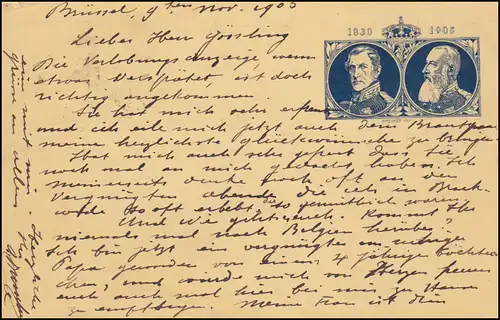 Brüssel, 9ten Nov. 1905
1830 1905
Lieber Herr Gössling
Die Verlobungsanzeige, wenn
etwas verspätet, ist doch
richtig angekommen.
Sie hat mich sehr erfreut
und ich eile mich jetzt auch dem Brautpaar
meine herzlichste Glückwünsche zu bringen.
Hat mich auch sehr gefreut, das Sie
noch mal an mich gedacht haben. Ich
meinerseits denke noch oft an den
vergnügten Abende die ich in Brack-
wede so oft erlebt so gemüthlich waren
Und wie geht's euch. Kommt Ihr
niemals mal nach Belgien herüber.
Ich bin jetzt ein vergnügter
Papa geworden von einem 4 jährige Töchter-
chen, und würde mich von Herzen freuen
euch auch mal hier bei mir zu Hause
zu empfangen. Meine Frau ist dem